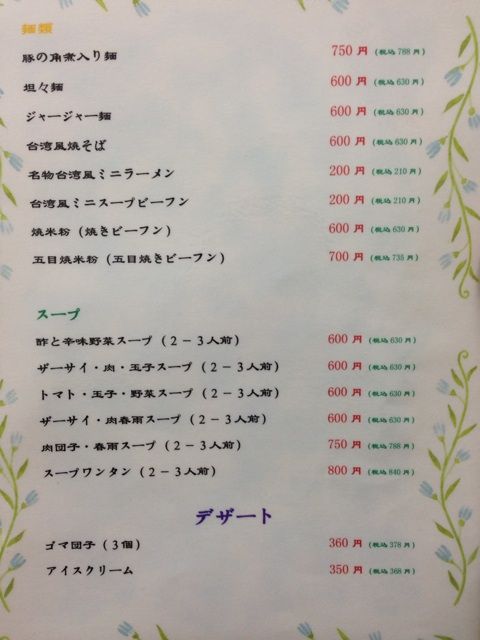 麺類
豚の角煮入り麺 750 円 (税込 788 円)
坦々麺 600 円 (税込 630 円)
ジャージャー麺 600 円 (税込 630 円)
台湾風焼そば 600 円 (税込 630 円)
名物台湾風ミニラーメン 200 円 (税込 210 円)
台湾風ミニスープビーフン 200 円 (税込 210 円)
焼米粉 (焼きビーフン) 600 円 (税込 630 円)
五目焼米粉 (五目焼きビーフン) 700 円 (税込 735 円)
スープ
酢と辛味野菜スープ (2－3人前) 600 円 (税込 630 円)
ザーサイ・肉・玉子スープ (2－3人前) 600 円 (税込 630 円)
トマト・玉子・野菜スープ (2－3人前) 600 円 (税込 630 円)
ザーサイ・肉春雨スープ (2－3人前) 600 円 (税込 630 円)
肉団子・春雨スープ (2－3人前) 750 円 (税込 788 円)
スープワンタン (2－3人前) 800 円 (税込 840 円)
デザート
ゴマ団子 (3個) 360 円 (税込 378 円)
アイスクリーム 350 円 (税込 368 円)